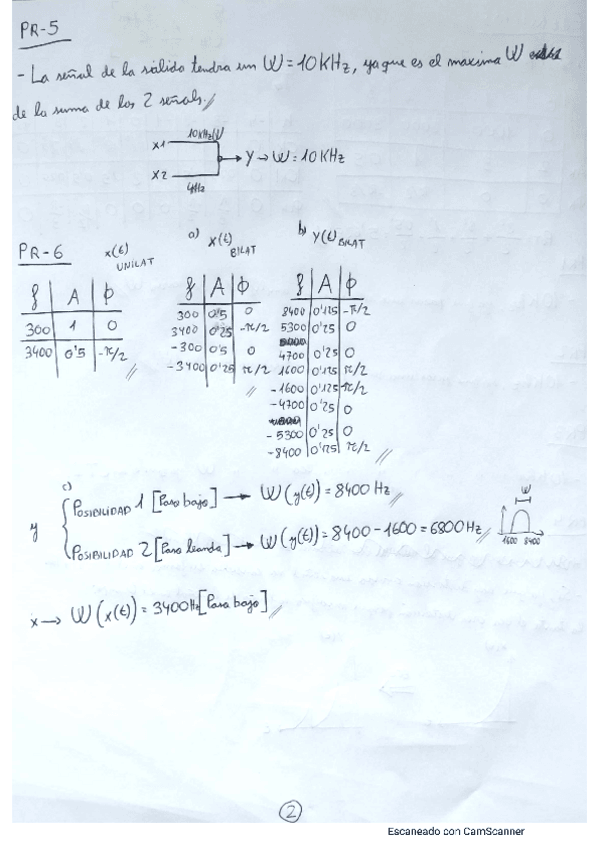 PR-5
- La señal de la salida tendra un W = 10KHz, ya que es el maximo W
de la suma de los 2 señals.
x1 10KHz W
→ y → W = 10KHz
x2 4Hz
PR-6 x(t) UNILAT a) x(t) BILAT b) y(t) BILAT
f A ϕ
300 1 0
3400 0'5 -π/2
f A ϕ
300 0'5 0
3400 0'25 -π/2
-300 0'5 0
-3400 0'25 π/2
f A ϕ
8400 0'125 -π/2
5300 0'25 0
4700 0'25 0
1600 0'125 π/2
-1600 0'125 -π/2
-4700 0'25 0
-5300 0'25 0
-8400 0'125 π/2
c)
y
POSIBILIDAD 1 [Paso bajo] → W(y(t)) = 8400 Hz
POSIBILIDAD 2 [Paso banda] → W(y(t)) = 8400 - 1600 = 6800Hz
W
1600 8400
x → W(x(t)) = 3400Hz [Paso bajo]
2
Escaneado con CamScanner